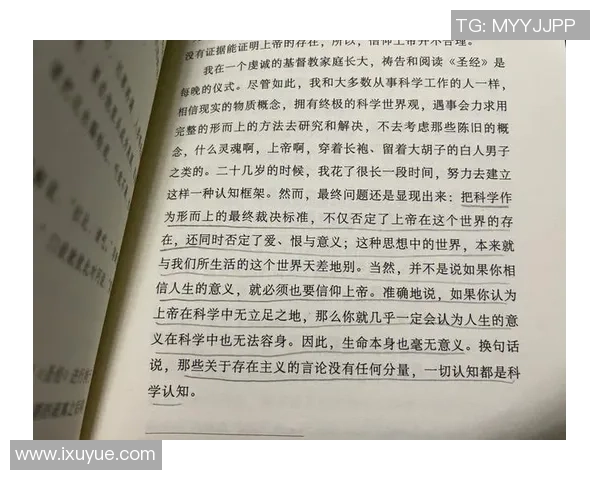 TG: MYYJJPP
没有证据能证明上帝的存在，所以，信仰上帝并不合理。
我在一个虔诚的基督教家庭长大，祷告和阅读《圣经》是
每晚的仪式。尽管如此，我和大多数从事科学工作的人一样，
相信现实的物质概念，拥有终极的科学世界观，遇事会力求用
完整的形而上的方法去研究和解决，不去考虑那些陈旧的概
念，什么灵魂啊，上帝啊，穿着长袍、留着大胡子的白人男子
之类的。二十几岁的时候，我花了很长一段时间，努力去建立
这样一种认知框架。然而，最终问题还是显现出来：把科学作
为形而上的最终裁决标准，不仅否定了上帝在这个世界的存
在，还同时否定了爱、恨与意义；这种思想中的世界，本来就
与我们所生活的这个世界天差地别。当然，并不是说如果你相
信人生的意义，就必须也要信仰上帝。准确地说，如果你认为
上帝在科学中无立足之地，那么你就几乎一定会认为人生的意
义在科学中也无法容身。因此，生命本身也毫无意义。换句话
说，那些关于存在主义的言论没有任何分量，一切认知都是科
学认知。
www.ixuyue.com